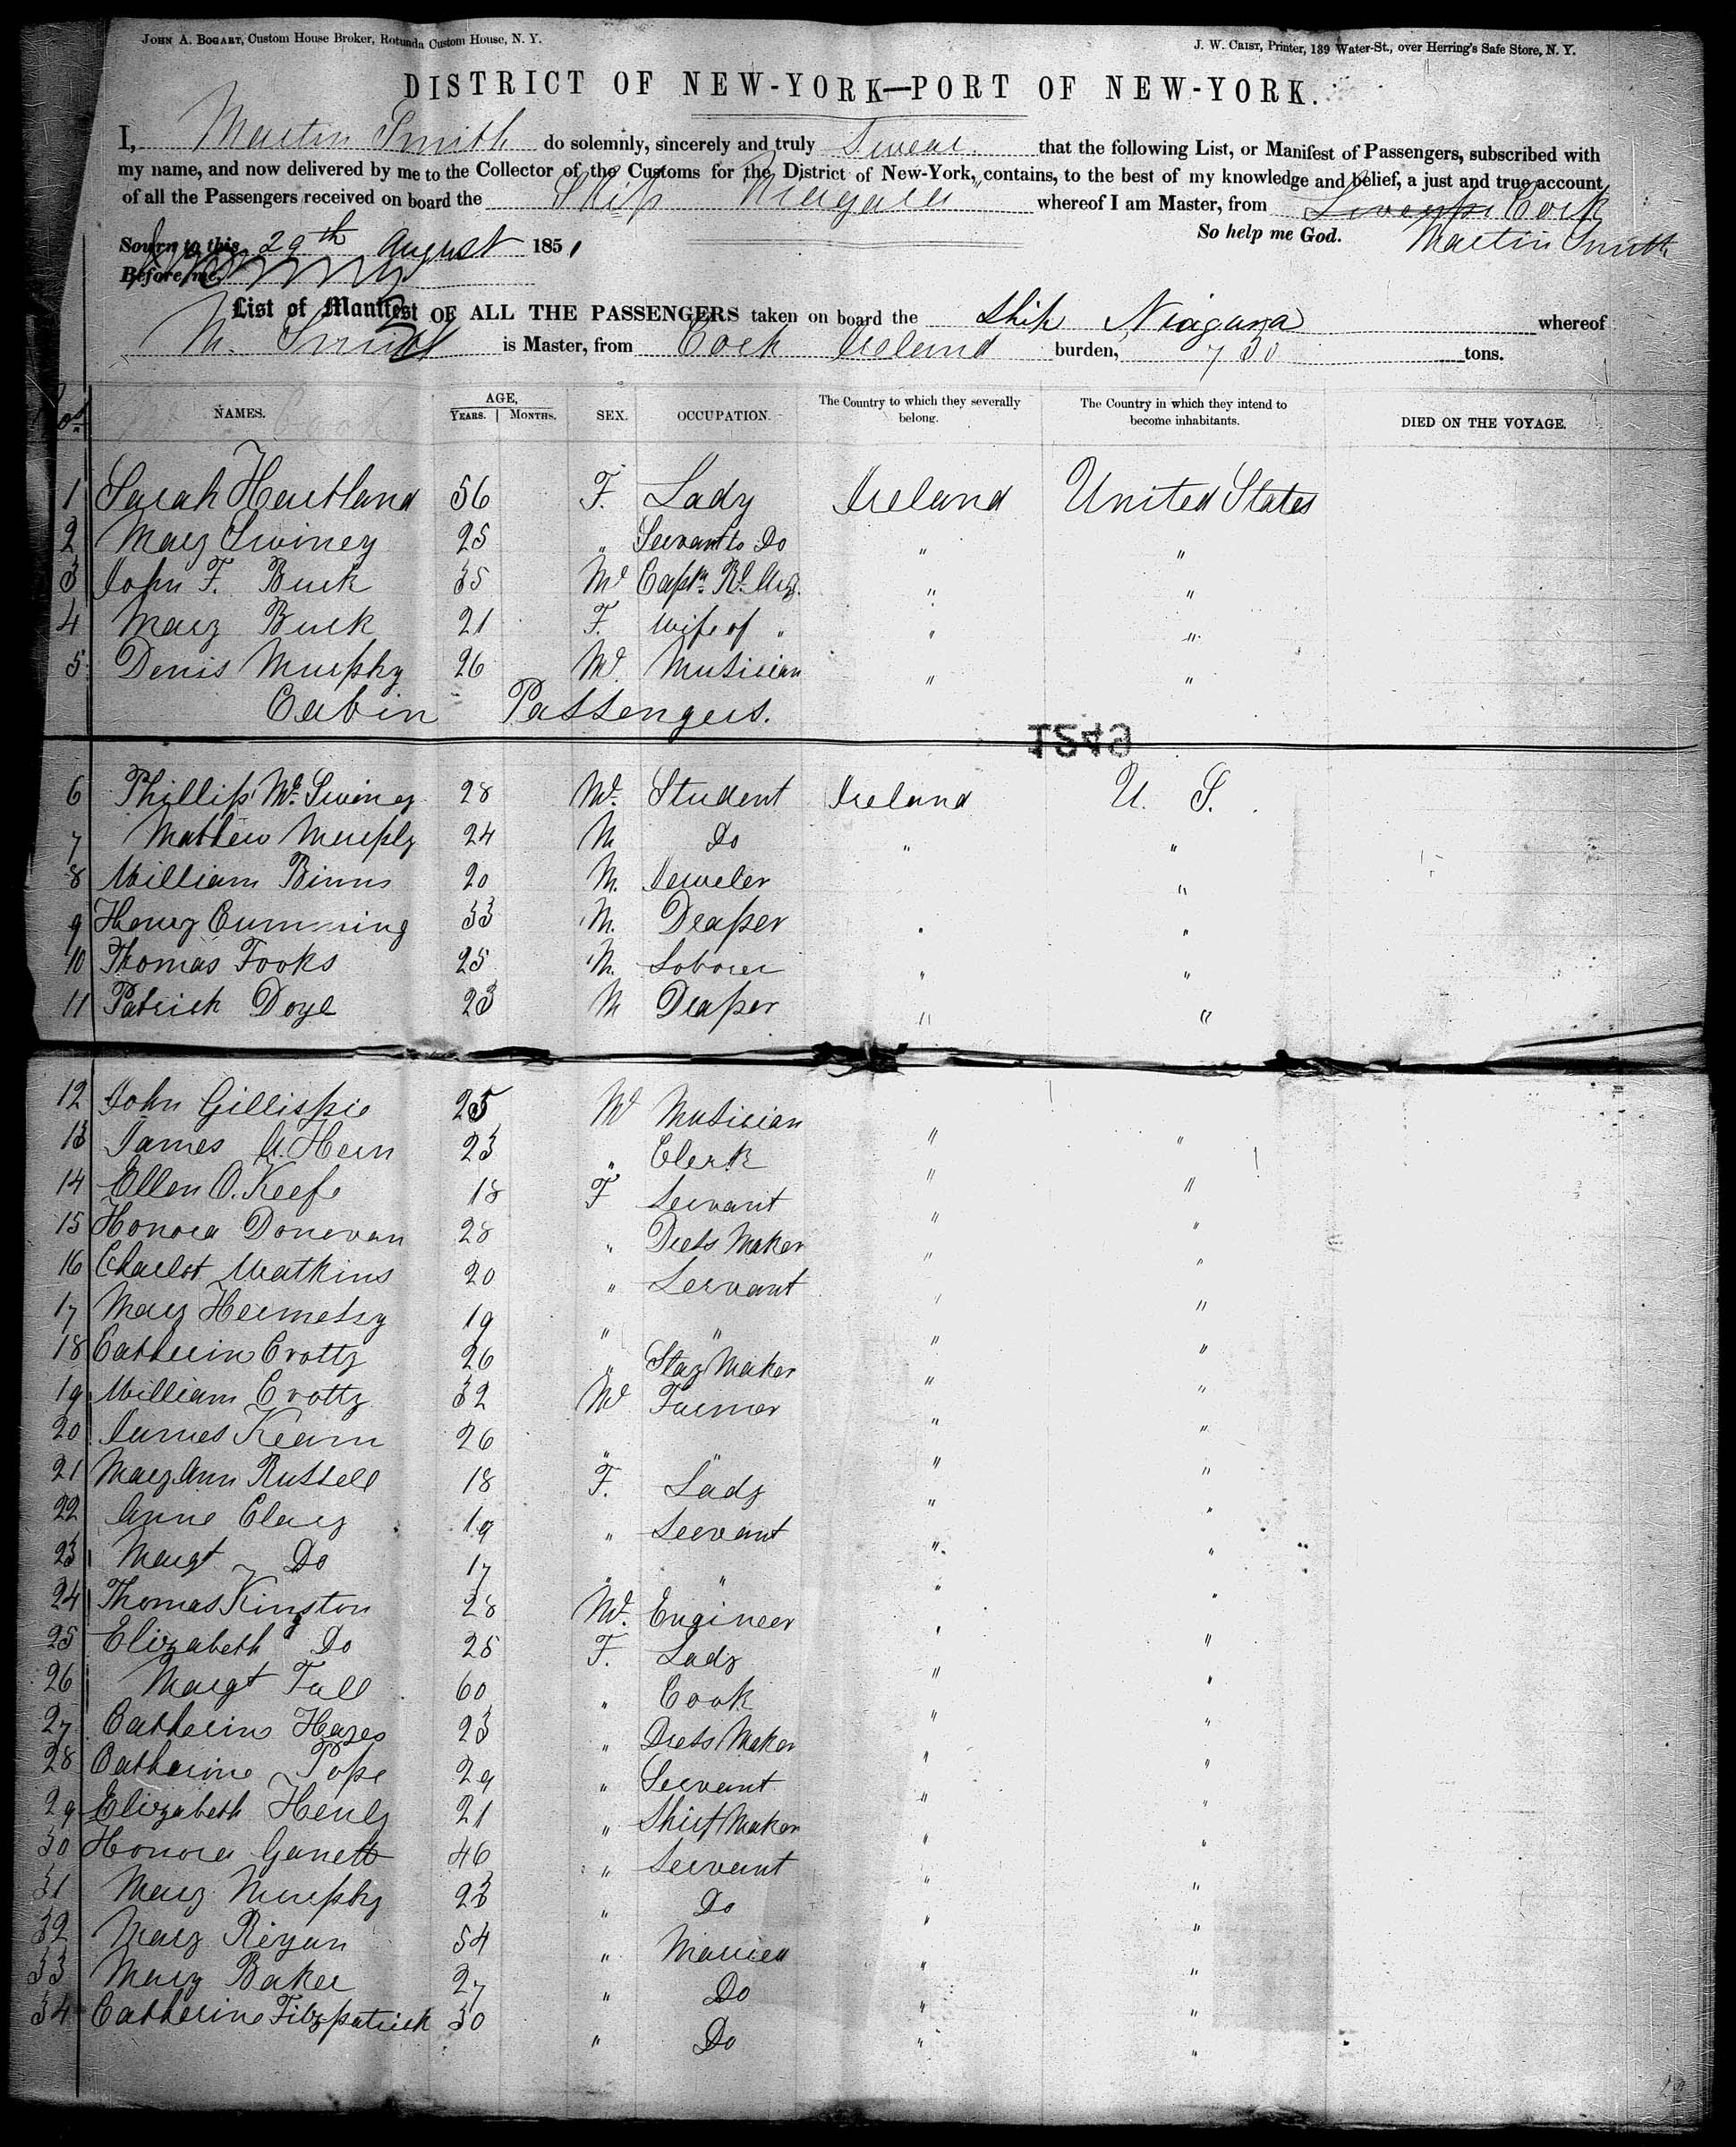 JOHN A. BOGART, Custom House Broker, Rotunda Custom House, N. Y.
J. W. CRIST, Printer, 139 Water-St., over Herring's Safe Store, N. Y.
DISTRICT OF NEW-YORK—PORT OF NEW-YORK.
I, Martin Smith do solemnly, sincerely and truly Swear that the following List, or Manifest of Passengers, subscribed with
my name, and now delivered by me to the Collector of the Customs for the District of New-York, contains, to the best of my knowledge and belief, a just and true account
of all the Passengers received on board the Ship Niagara whereof I am Master, from Cork
So help me God. Martin Smith
Sworn to this 29th August 1851
Before me,
List of Manifest OF ALL THE PASSENGERS taken on board the Ship Niagara whereof
M. Smith is Master, from Cork Ireland burden, 730 tons.
Nos NAMES. AGE, YEARS. MONTHS. SEX. OCCUPATION. The Country to which they severally belong. The Country in which they intend to become inhabitants. DIED ON THE VOYAGE.
1 Sarah Hartland 56 F. Lady Ireland United States
2 Mary Swiney 25 " Servant to Do " "
3 John F. Buck 35 M Captn. Rl. " "
4 Mary Buck 21 F. Wife of " " "
5 Denis Murphy 26 M. Musician " "
Cabin Passengers.
1549
6 Phillip Mc. Swiney 28 M. Student Ireland U. S.
7 Mathew Murphy 24 M Do " "
8 William Binns 20 M. Jeweler "
9 Henry Cumming 33 M. Draper " "
10 Thomas Fooks 25 M. Loborer " "
11 Patrick Doyl 23 M Draper " "
12 John Gillispie 25 M Musician " "
13 James A. Hern 23 " Clerk " "
14 Ellen O. Keefe 18 F Servant " "
15 Honora Donovan 28 " Dress Maker " "
16 Charlot Watkins 20 " Servant " "
17 Mary 19 " " " "
18 Catherin Crotty 26 " Stay Maker " "
19 William Crotty 32 M Farmer " "
20 James Kearn 26 " " " "
21 Mary Ann Russell 18 F. Lady " "
22 Anne Clary 19 " Servant " "
23 Margt Do 17 " " " "
24 Thomas Kingston 28 M. Engineer " "
25 Elizabeth Do 25 F. Lady " "
26 Margt Fall 60 " Cook " "
27 Catherine Hayes 23 " Dress Maker " "
28 Catherine Pope 29 " Servant " "
29 Elizabeth Henly 21 " Shirt Maker " "
30 Honora Garrett 46 " Servant " "
31 Mary Murphy 23 " Do " "
32 Mary Riyan 54 " Married " "
33 Mary Baker 27 " Do " "
34 Catherine Fitzpatrick 30 " Do " "